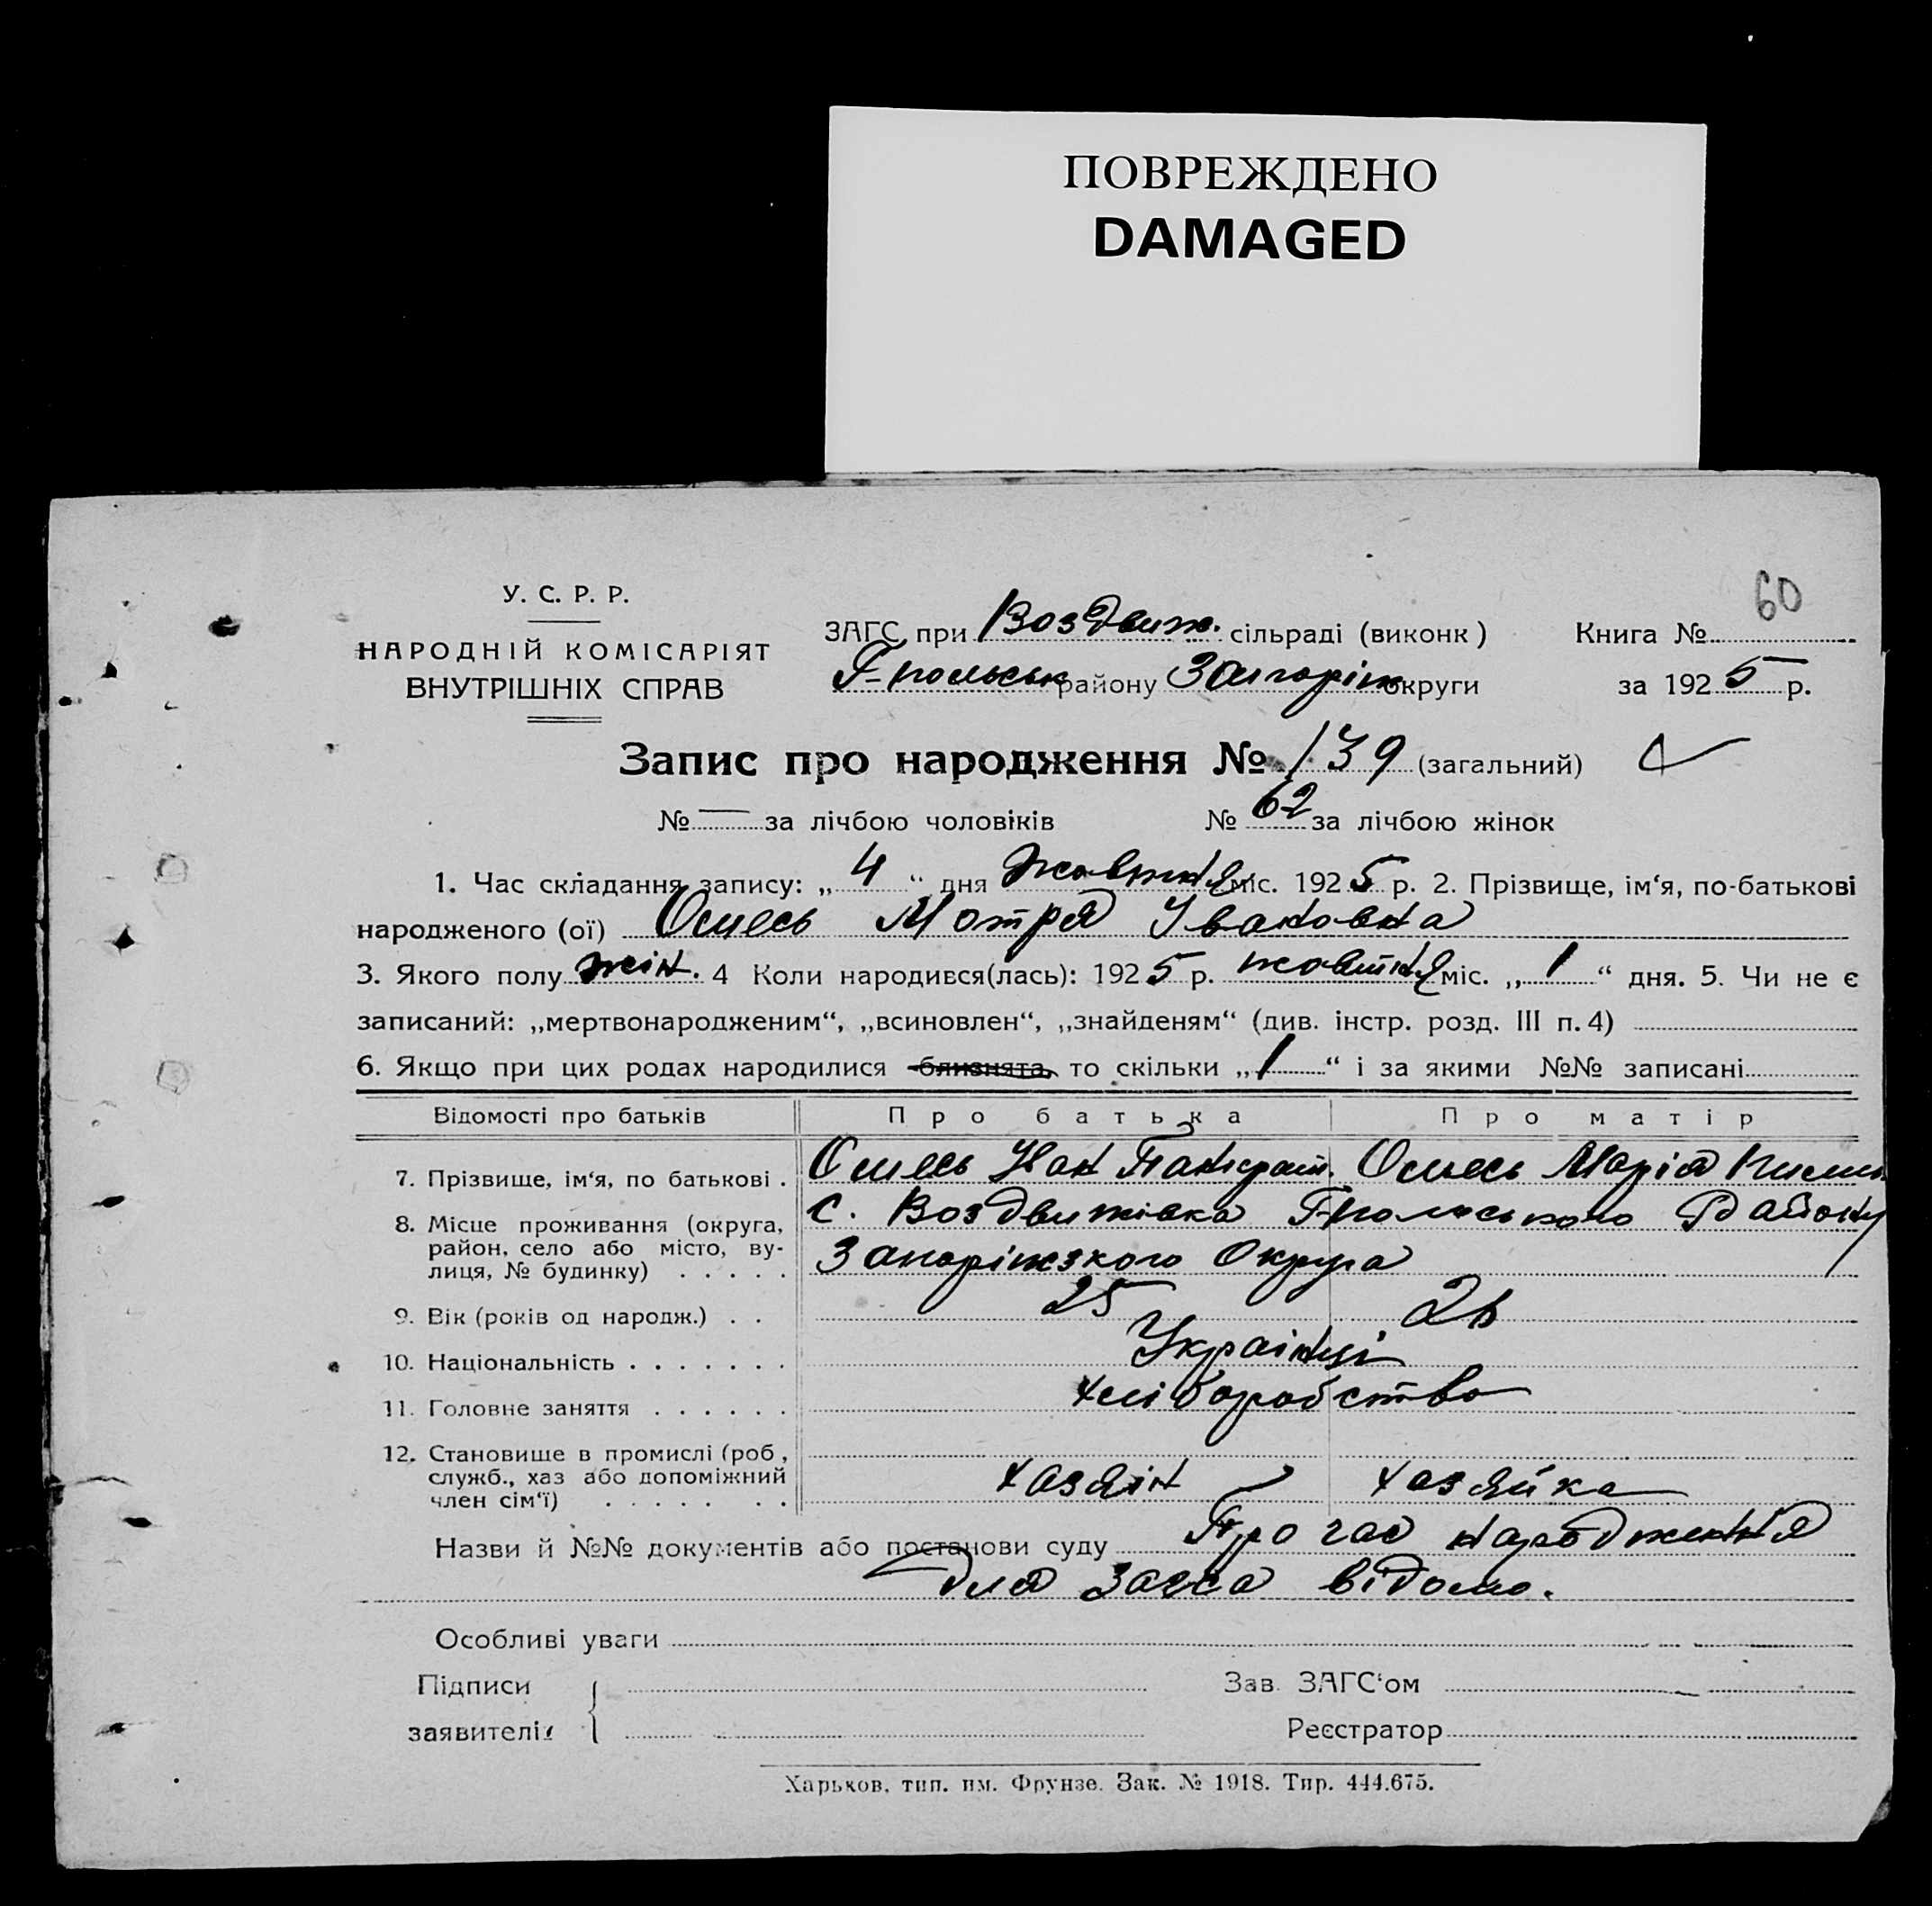 ПОВРЕЖДЕНО
DAMAGED
60
У. С. Р. Р.
НАРОДНІЙ КОМІСАРІЯТ
ВНУТРІШНІХ СПРАВ
ЗАГС при Воздвиж. сільраді (виконк) Книга №
Г-польськ району Запоріж округи за 1925 р.
Запис про народження № 139 (загальний)
№ — за лічбою чоловіків № 62 за лічбою жінок
1. Час складання запису: „ 4 “ дня міс. 1925 р. 2. Прізвище, ім‘я, по-батькові
народженого (ої) Мотря Івановна
3. Якого полу жін. 4 Коли народився(лась): 1925 р. жовтня міс. „ 1 “ дня. 5. Чи не є
записаний: „мертвонародженим“, „всиновлен“, „знайденям“ (див. інстр. розд. III п. 4)
6. Якщо при цих родах народилися близнята, то скільки „ 1 “ і за якими №№ записані
Відомості про батьків Про батька Про матір
7. Прізвище, ім‘я, по батькові . Іван Панкрат. Марія
8. Місце проживання (округа, с. Воздвижівка Г-польського Району
район, село або місто, ву-
лиця, № будинку) . . . . . Запоріжзкого Округа
9. Вік (років од народж.) . . 25
10. Національність . . . . . . . Українці
11. Головне заняття . . . . . . хліборобство
12. Становище в промислі (роб,
служб., хаз або допоміжний хазяін хазяйка
член сім‘ї) . . . . . . .
Назви й №№ документів або постанови суду Про час народження
для Загса відомо.
Особливі уваги
Підписи Зав. ЗАГС‘ом
заявителів Реєстратор
Харьков, тип. им. Фрунзе. Зак. № 1918. Тир. 444.675.